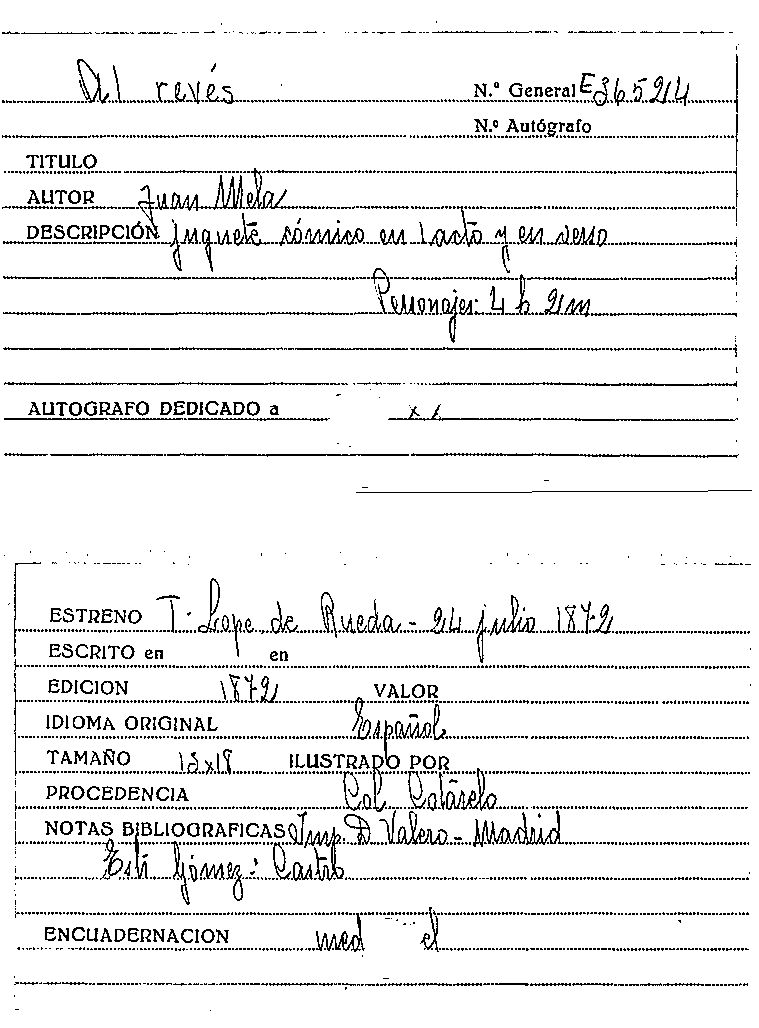 Al revés N.º General E 36524
N.º Autógrafo
TITULO
AUTOR Juan Mela
DESCRIPCIÓN juguete cómico en 1 acto y en verso
Personajes: 4 h 2 m
AUTOGRAFO DEDICADO a
ESTRENO T. Lope de Rueda - 24 julio 1872
ESCRITO en en
EDICION 1872 VALOR
IDIOMA ORIGINAL Español
TAMAÑO 13x19 ILUSTRADO POR
PROCEDENCIA Col. Cotarelo
NOTAS BIBLIOGRAFICAS Imp. D. Valero - Madrid
Gómez: Castilb
ENCUADERNACION med el